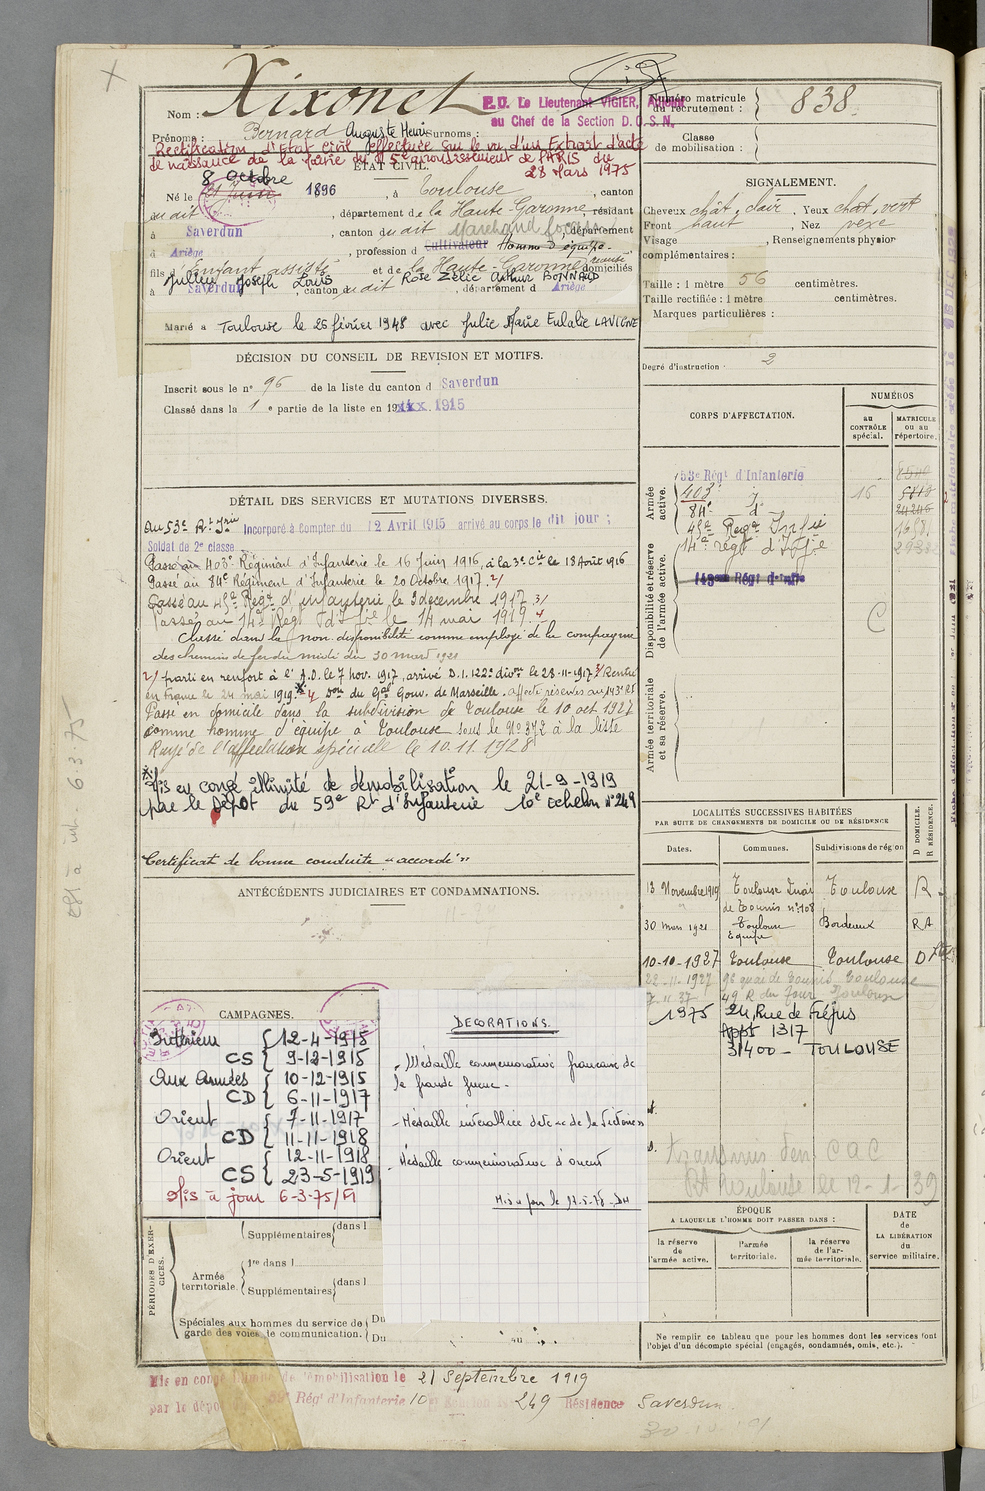 Nom : Xixonet
P.O. Le Lieutenant VIGIER, Adjoint
au Chef de la Section D.O.S.N.
Prénoms : Bernard Auguste Henri Surnoms :
Rectification d'Etat Civil effectuée sur le vu d'un Extrait d'acte
de naissance de la Mairie du 5e arrondissement de PARIS du
28 Mars 1975
ÉTAT CIVIL.
8 octobre
Né le 1896 , à Toulouse , canton
du dit , département de la Haute-Garonne, résidant
à Saverdun , canton du dit , département
d Ariège , profession d Cultivateur Homme d'équipe
fils d' Enfant assisté et de la Haute-Garonne domiciliés
Julien Joseph Louis Rose Zélie Arthur BONNAUD
à Saverdun , canton du dit , département d Ariège
Marié à Toulouse le 26 février 1948 avec Julie Marie Eulalie LAVIGNE
DÉCISION DU CONSEIL DE REVISION ET MOTIFS.
Inscrit sous le n° 96 de la liste du canton d Saverdun
Classé dans la 1 e partie de la liste en 1915
DÉTAIL DES SERVICES ET MUTATIONS DIVERSES.
Au 53e Rt Irie Incorporé à Compter du 12 Avril 1915 arrivé au corps le dit jour ;
Soldat de 2e classe
Passé au 403e Régiment d'Infanterie le 16 Juin 1916, à la 3e Cie le 18 Août 1916
Passé au 84e Régiment d'Infanterie le 20 Octobre 1917. 2/
Passé au 45e Regt d'infanterie le 3 décembre 1917 3/
Passé au 14e Regt d'Ifie le 14 mai 1919. 4
Classé dans la non disponibilité comme employé de la compagnie
des chemins de fer du midi du 30 mars 1921
2/ parti en renfort à l'A.O. le 7 nov. 1917, arrivé D.I. 122e divon le 28-11-1917 3/ Rentré
en France le 24 mai 1919. 4/ du Gal Gouv. de Marseille. affecté réserves au 143e RI
Passé en domicile dans la subdivision de Toulouse le 10 oct 1927
comme homme d'équipe à Toulouse sous le N° 372 à la liste
Rayé de l'affectation spéciale le 10.11.1928
Mis en congé illimité de démobilisation le 21-9-1919
par le Dépôt du 59e Rt d'Infanterie 10e Echelon N° 249
Certificat de bonne conduite "accordé"
ANTÉCÉDENTS JUDICIAIRES ET CONDAMNATIONS.
CAMPAGNES.
Intérieur { 12-4-1915
CS { 9-12-1915
Aux Armées { 10-12-1915
CD { 6-11-1917
Orient { 7-11-1917
CD { 11-11-1918
Orient { 12-11-1918
CS { 23-5-1919
Mis à jour 6-3-75
DECORATIONS.
- Médaille commémorative française de
la grande guerre -
- Médaille interalliée dite "de la Victoire"
- Médaille commémorative d'orient
Mis à jour le
PÉRIODES D'EXERCICES.
Supplémentaires { dans l
Armée territoriale. { 1re dans l
Supplémentaires { dans l
Spéciales aux hommes du service de garde des voies de communication. { Du
Du au
Numéro matricule du recrutement : 838
Classe de mobilisation :
SIGNALEMENT.
Cheveux chât. clair , Yeux chât. vert
Front haut , Nez vexe
Visage , Renseignements physionomiques
complémentaires :
Taille : 1 mètre 56 centimètres.
Taille rectifiée : 1 mètre centimètres.
Marques particulières :
Degré d'instruction : 2
CORPS D'AFFECTATION.
NUMÉROS
au CONTRÔLE spécial.
MATRICULE ou au répertoire.
Armée active.
53e Régt d'Infanterie
403e d°
84e d°
45e Regt Infie
14e régt d'Ifie
Disponibilité et réserve de l'armée active.
143eme Régt d'Infie
C
Armée territoriale et sa réserve.
LOCALITÉS SUCCESSIVES HABITÉES
PAR SUITE DE CHANGEMENTS DE DOMICILE OU DE RÉSIDENCE
Dates. Communes. Subdivisions de région D DOMICILE. R RÉSIDENCE.
13 Novembre 1919 Toulouse Quai de Tounis n° 108 Toulouse R
30 mars 1921 Toulouse Equipe Bordeaux RA
10-10-1927 Toulouse Toulouse D
22-11-1927 96 quai de Tounis Toulouse
7-11-37 49 R du Four Toulouse
1975 24, Rue de Fréjus
Appt 1317
31400 - TOULOUSE
Toulouse le 12-1-39
ÉPOQUE
A LAQUELLE L'HOMME DOIT PASSER DANS :
la réserve de l'armée active. l'armée territoriale. la réserve de l'armée territoriale.
DATE de LA LIBÉRATION du service militaire.
Ne remplir ce tableau que pour les hommes dont les services font
l'objet d'un décompte spécial (engagés, condamnés, omis, etc.).
Mis en congé illimité de démobilisation le 21 Septembre 1919
par le dépôt 59e Régt d'Infanterie 10e Echelon N° 249 Résidence Saverdun